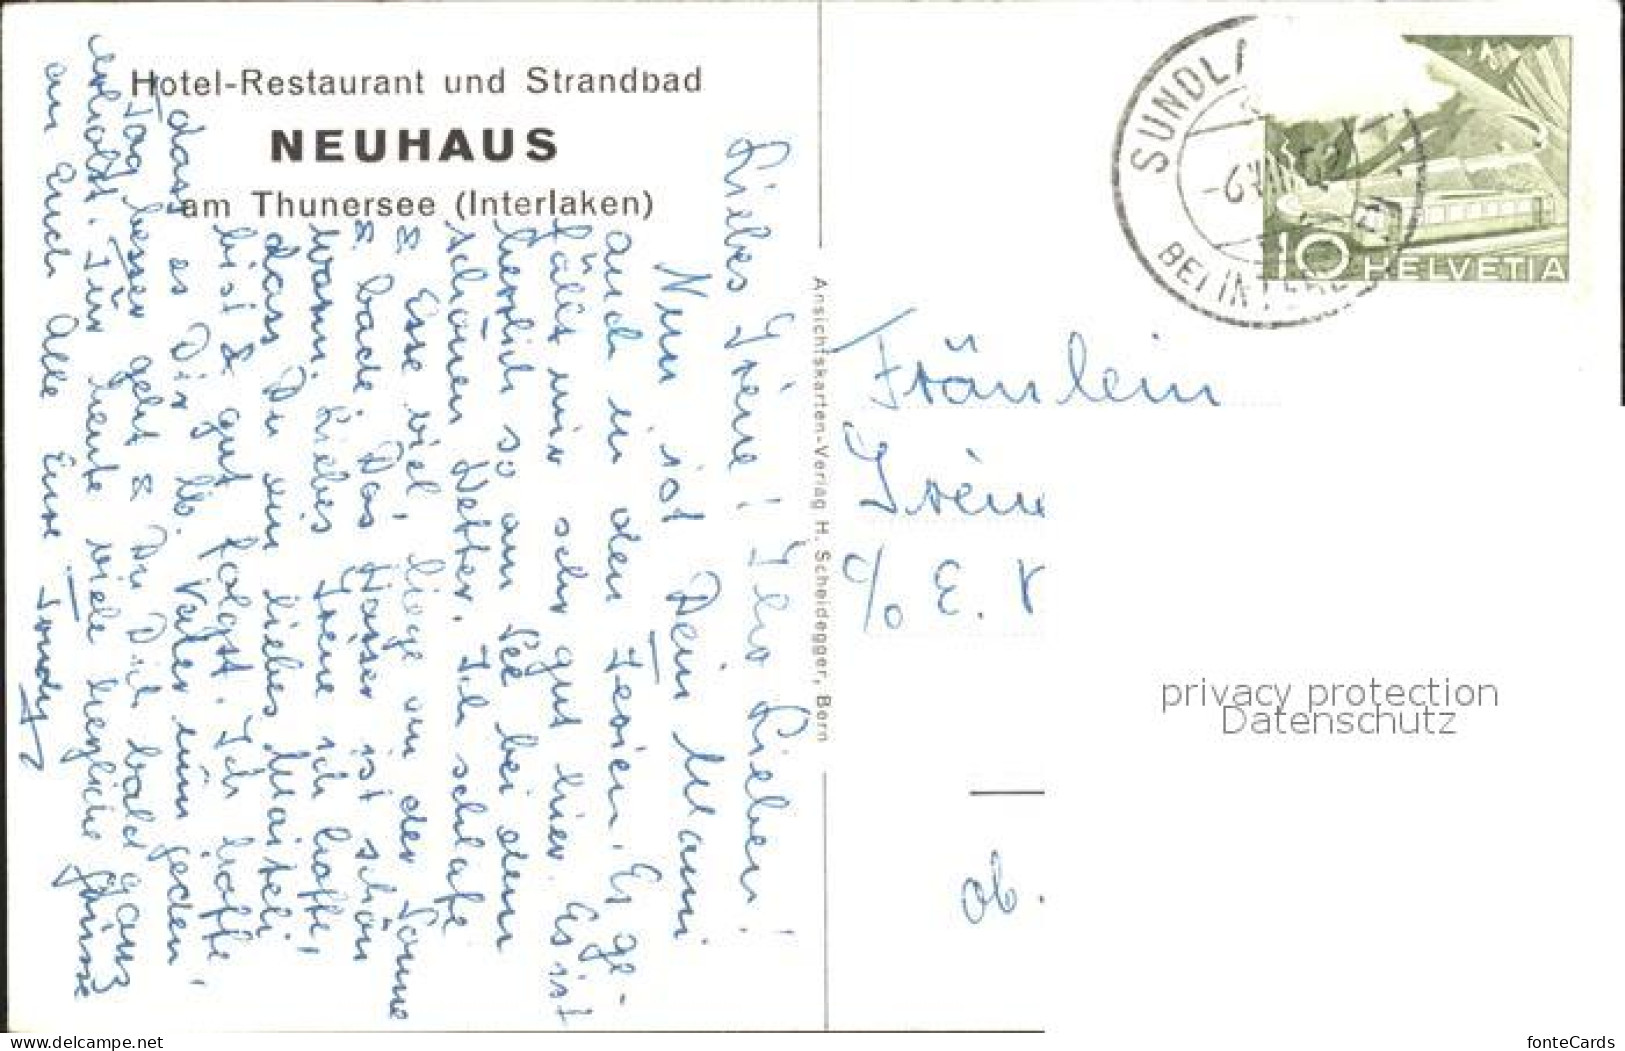 Hotel-Restaurant und Strandbad
NEUHAUS
am Thunersee (Interlaken)
Liebes Irène! Ihr Lieben!
Nun ist Dein Mami
auch in den Ferien. Es ge-
fällt mir sehr gut hier. Es ist
herrlich so am See bei dem
schönen Wetter. Ich schlafe
& Esse viel, liege an der Sonne
& bade. Das Wasser ist schön
warm. Liebes Irène ich hoffe,
dass Du ein liebes Maiteli
bist & gut folgst. Ich hoffe,
dass es Dir lb. Vater nun jeden
Tag besser geht & Du Dich bald ganz
erholst. Für heute viele herzliche Grüsse
an Euch Alle Eure Trudy
Ansichtskarten-Verlag H. Scheidegger, Bern
SUNDL
-6.VIII.52
BEI INTERL
10 HELVETIA
Fräulein
Irène
c/o E. V
ob.
privacy protection
Datenschutz
delcampe.net
fonteCards